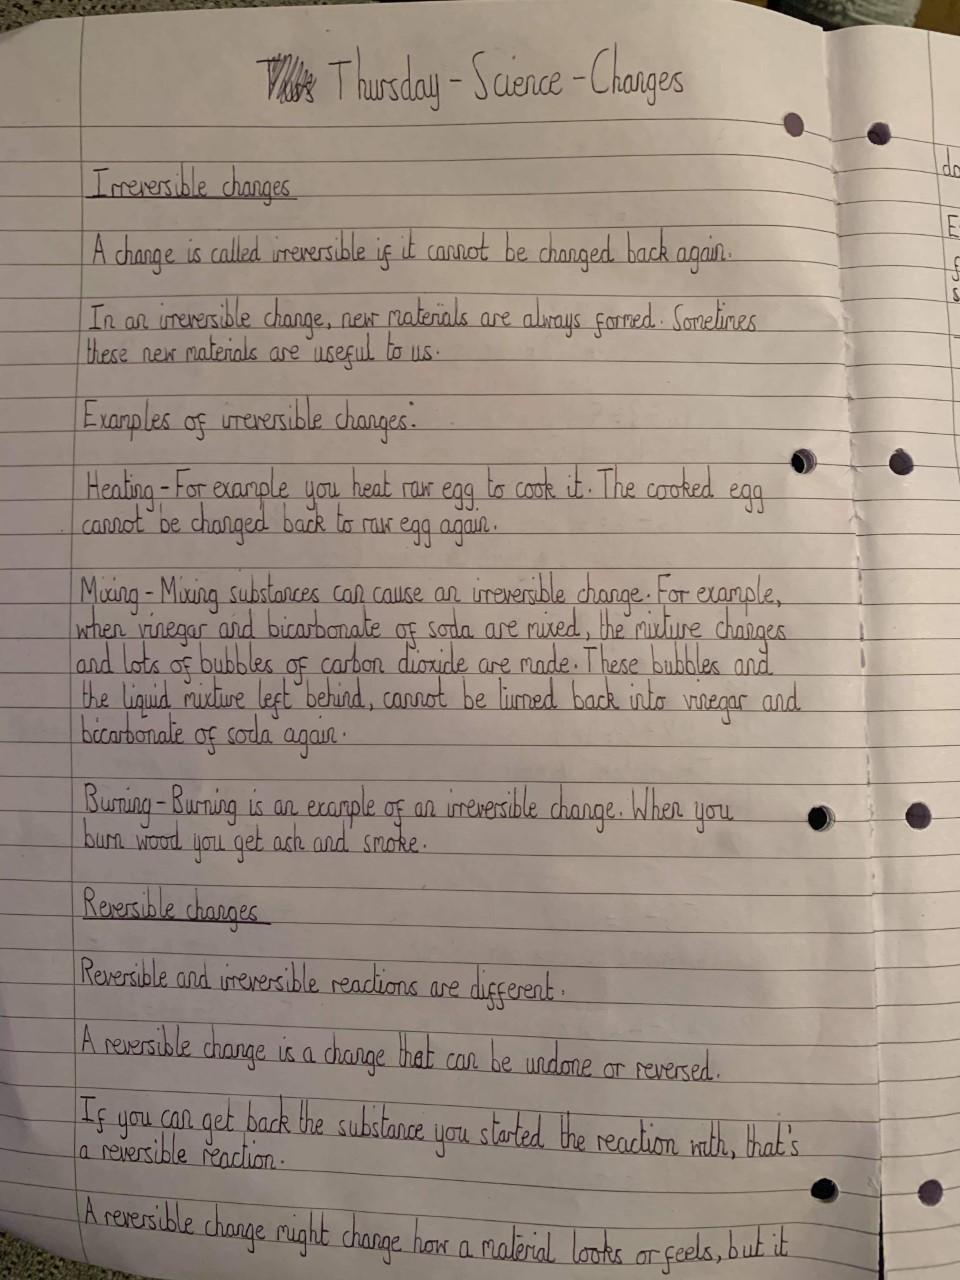 Thursday - Science - Changes
Irreversible changes
A change is called irreversible if it cannot be changed back again.
In an irreversible change, new materials are always formed. Sometimes
these new materials are useful to us.
Examples of irreversible changes:
Heating - For example you heat raw egg to cook it. The cooked egg
cannot be changed back to raw egg again.
Mixing - Mixing substances can cause an irreversible change. For example,
when vinegar and bicarbonate of soda are mixed, the mixture changes
and lots of bubbles of carbon dioxide are made. These bubbles and
the liquid mixture left behind, cannot be turned back into vinegar and
bicarbonate of soda again.
Burning - Burning is an example of an irreversible change. When you
burn wood you get ash and smoke.
Reversible changes
Reversible and irreversible reactions are different.
A reversible change is a change that can be undone or reversed.
If you can get back the substance you started the reaction with, that's
a reversible reaction.
A reversible change might change how a material looks or feels, but it